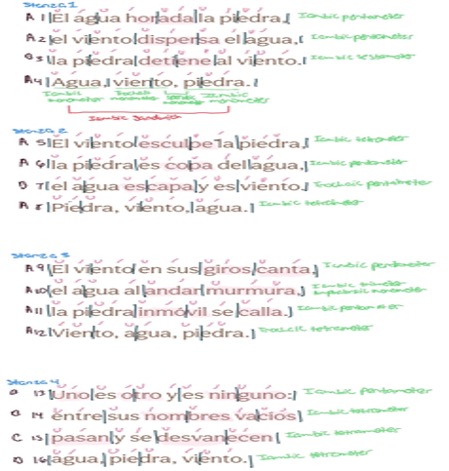 Stanza 1
A 1 El agua horada la piedra, Iambic pentameter
A 2 el viento dispersa el agua, Iambic pentameter
B 3 la piedra detiene al viento. Iambic tetrameter
A 4 Agua, viento, piedra.
Iambic monometer Trochaic monometer monometer Iambic monometer
Iambic Sandwich
Stanza 2
A 5 El viento esculpe la piedra, Iambic tetrameter
A 6 la piedra es copa del agua, Iambic pentameter
B 7 el agua escapa y es viento. Trochaic pentameter
A 8 Piedra, viento, agua. Iambic tetrameter
Stanza 3
A 9 El viento en sus giros canta, Iambic pentameter
A 10 el agua al andar murmura, Iambic trimeter
monometer
A 11 la piedra inmóvil se calla. Iambic pentameter
A 12 Viento, agua, piedra. Trochaic tetrameter
Stanza 4
B 13 Uno es otro y es ninguno: Iambic pentameter
B 14 entre sus nombres vacíos Iambic tetrameter
C 15 pasan y se desvanecen Iambic tetrameter
B 16 agua, piedra, viento. Iambic tetrameter